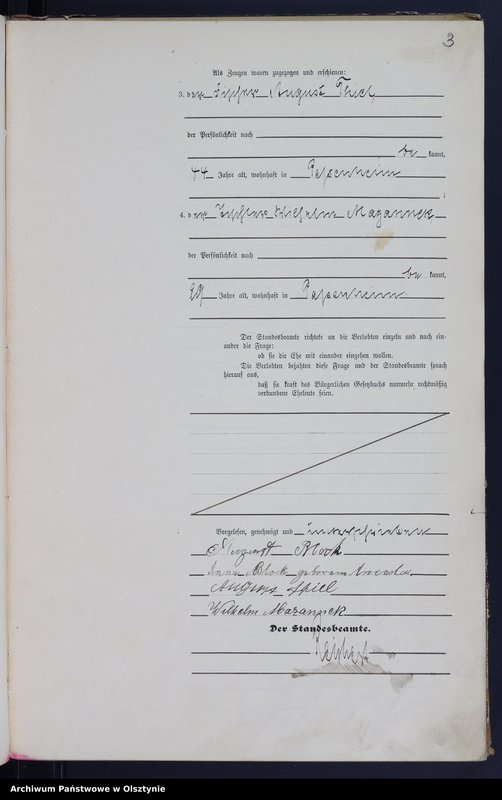 3
Als Zeugen waren zugezogen und erschienen:
3. der Fischer August Thiel,
der Persönlichkeit nach
be kannt,
44 Jahre alt, wohnhaft in Passenheim
;
4. der Tischler Wilhelm Mazannek
der Persönlichkeit nach
be kannt,
29 Jahre alt, wohnhaft in Passenheim
Der Standesbeamte richtete an die Verlobten einzeln und nach ein-
ander die Frage:
ob sie die Ehe mit einander eingehen wollen.
Die Verlobten bejahten diese Frage und der Standesbeamte sprach
hierauf aus,
daß sie kraft des Bürgerlichen Gesetzbuchs nunmehr rechtmäßig
verbundene Eheleute seien.
Vorgelesen, genehmigt und unterschrieben
August Block
Anna Block geborene
August Thiel
Wilhelm Mazannek
Der Standesbeamte.
Archiwum Państwowe w Olsztynie